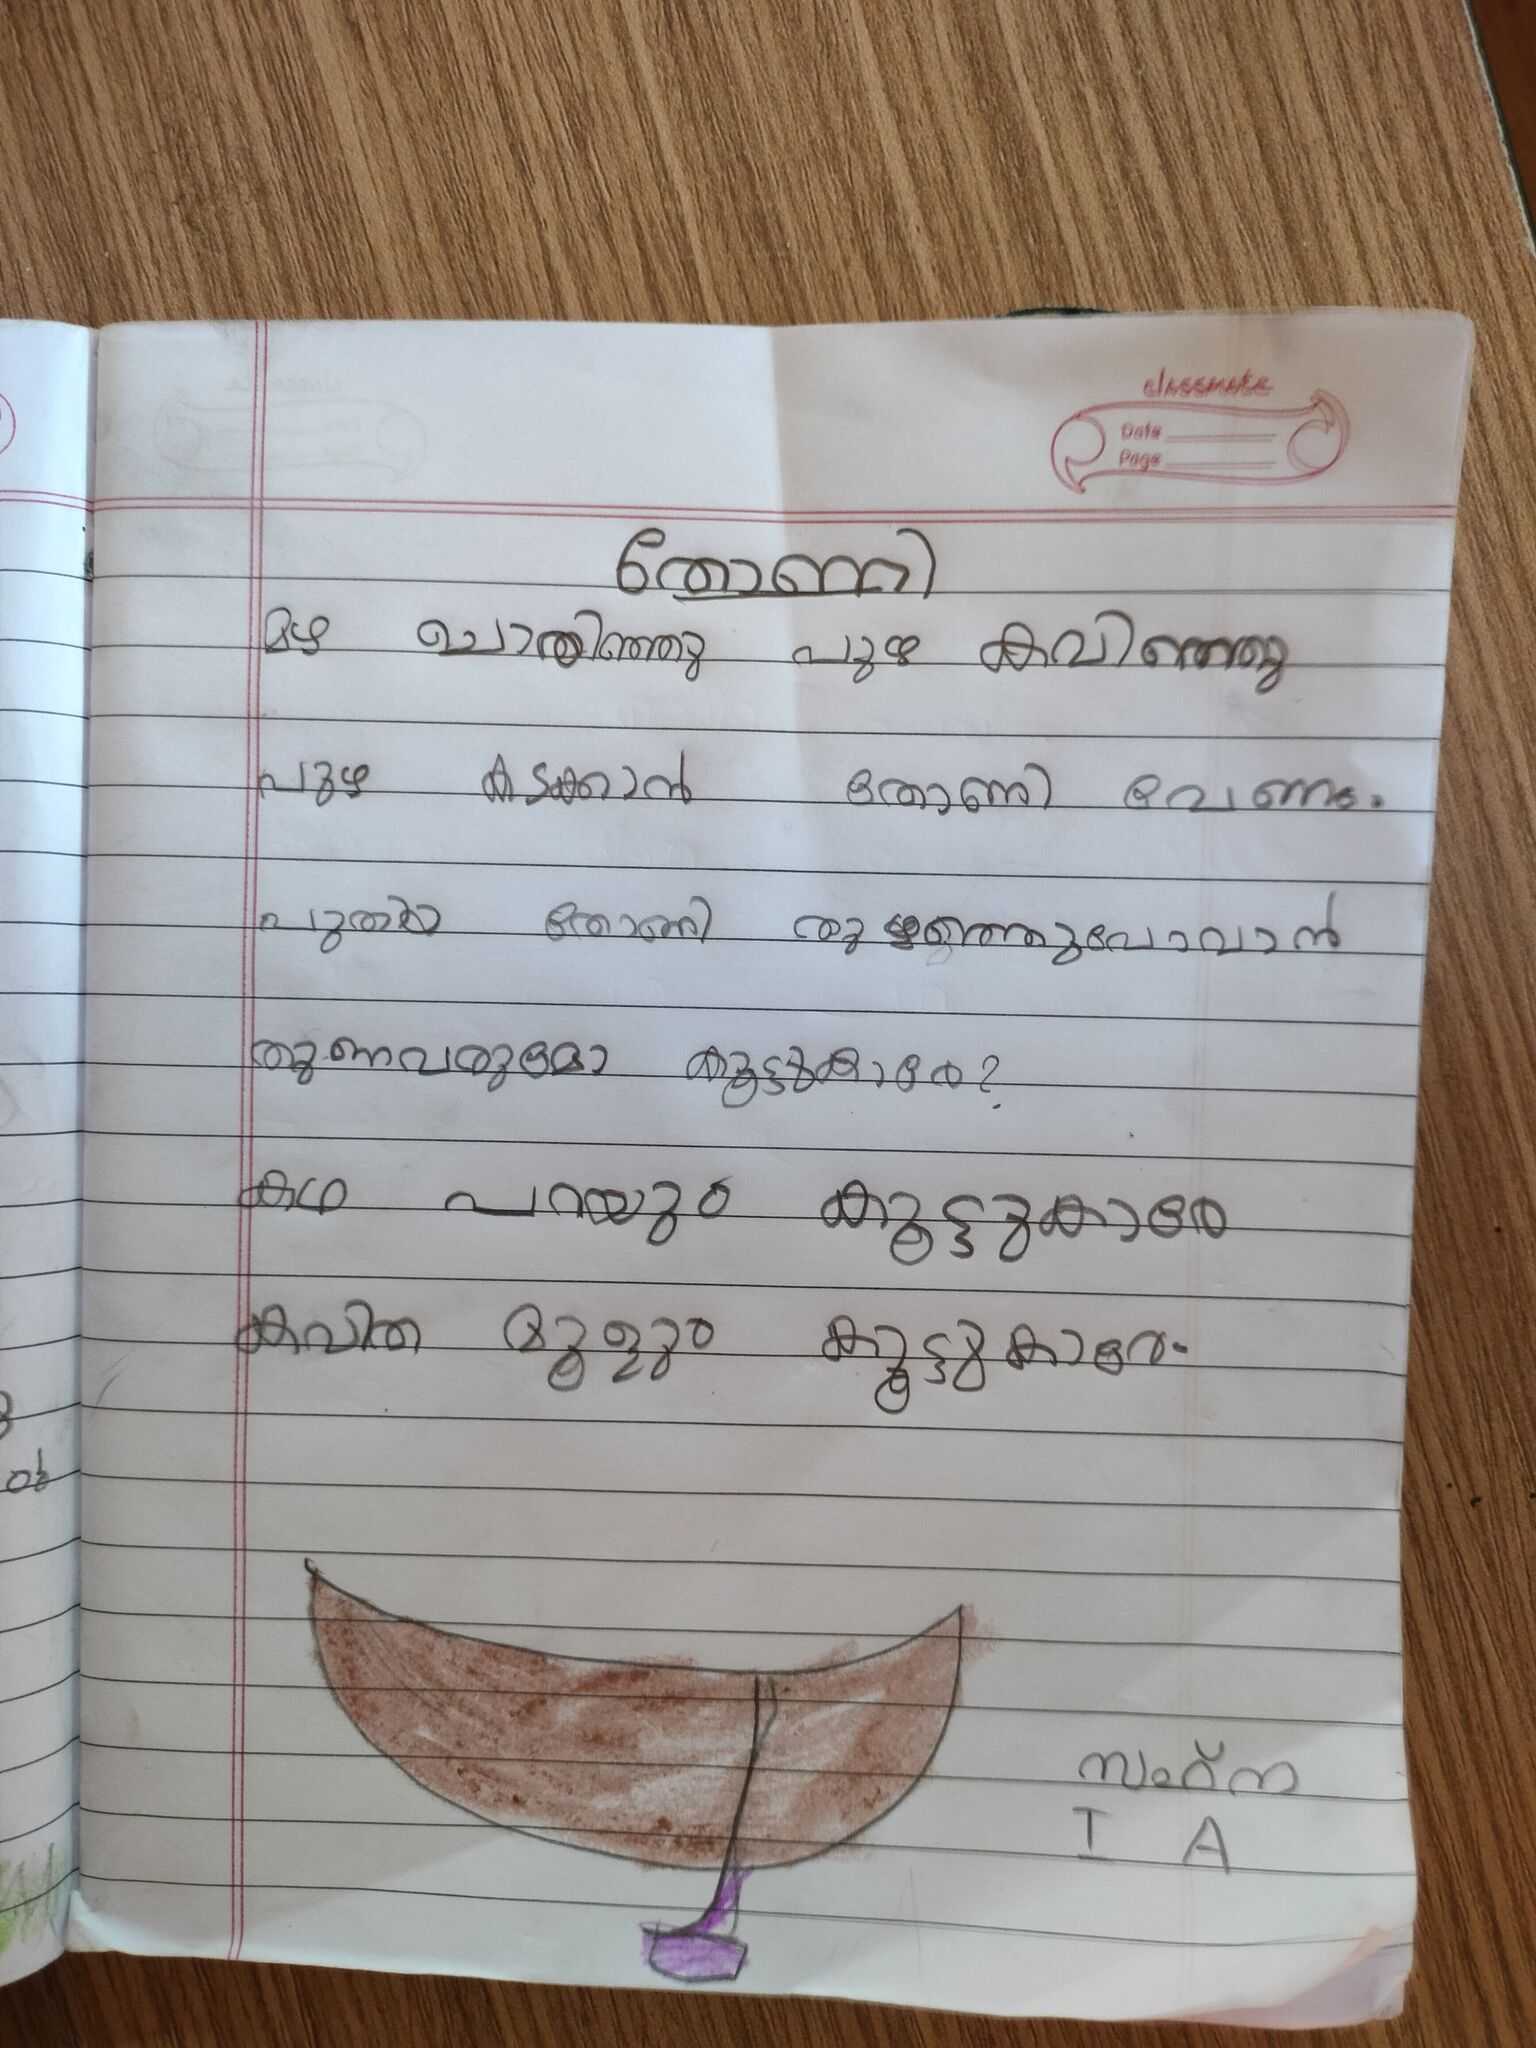 classmate
Date
Page
തോണി
മഴ ചൊരിഞ്ഞു പുഴ കവിഞ്ഞു
പുഴ കടക്കാൻ തോണി വേണം.
പുതിയ തോണി തുഴഞ്ഞുപോവാൻ
തുണവരുമോ കൂട്ടുകാരേ?
കഥ പറയും കൂട്ടുകാരേ
കവിത മൂളും കൂട്ടുകാരേ.
I A